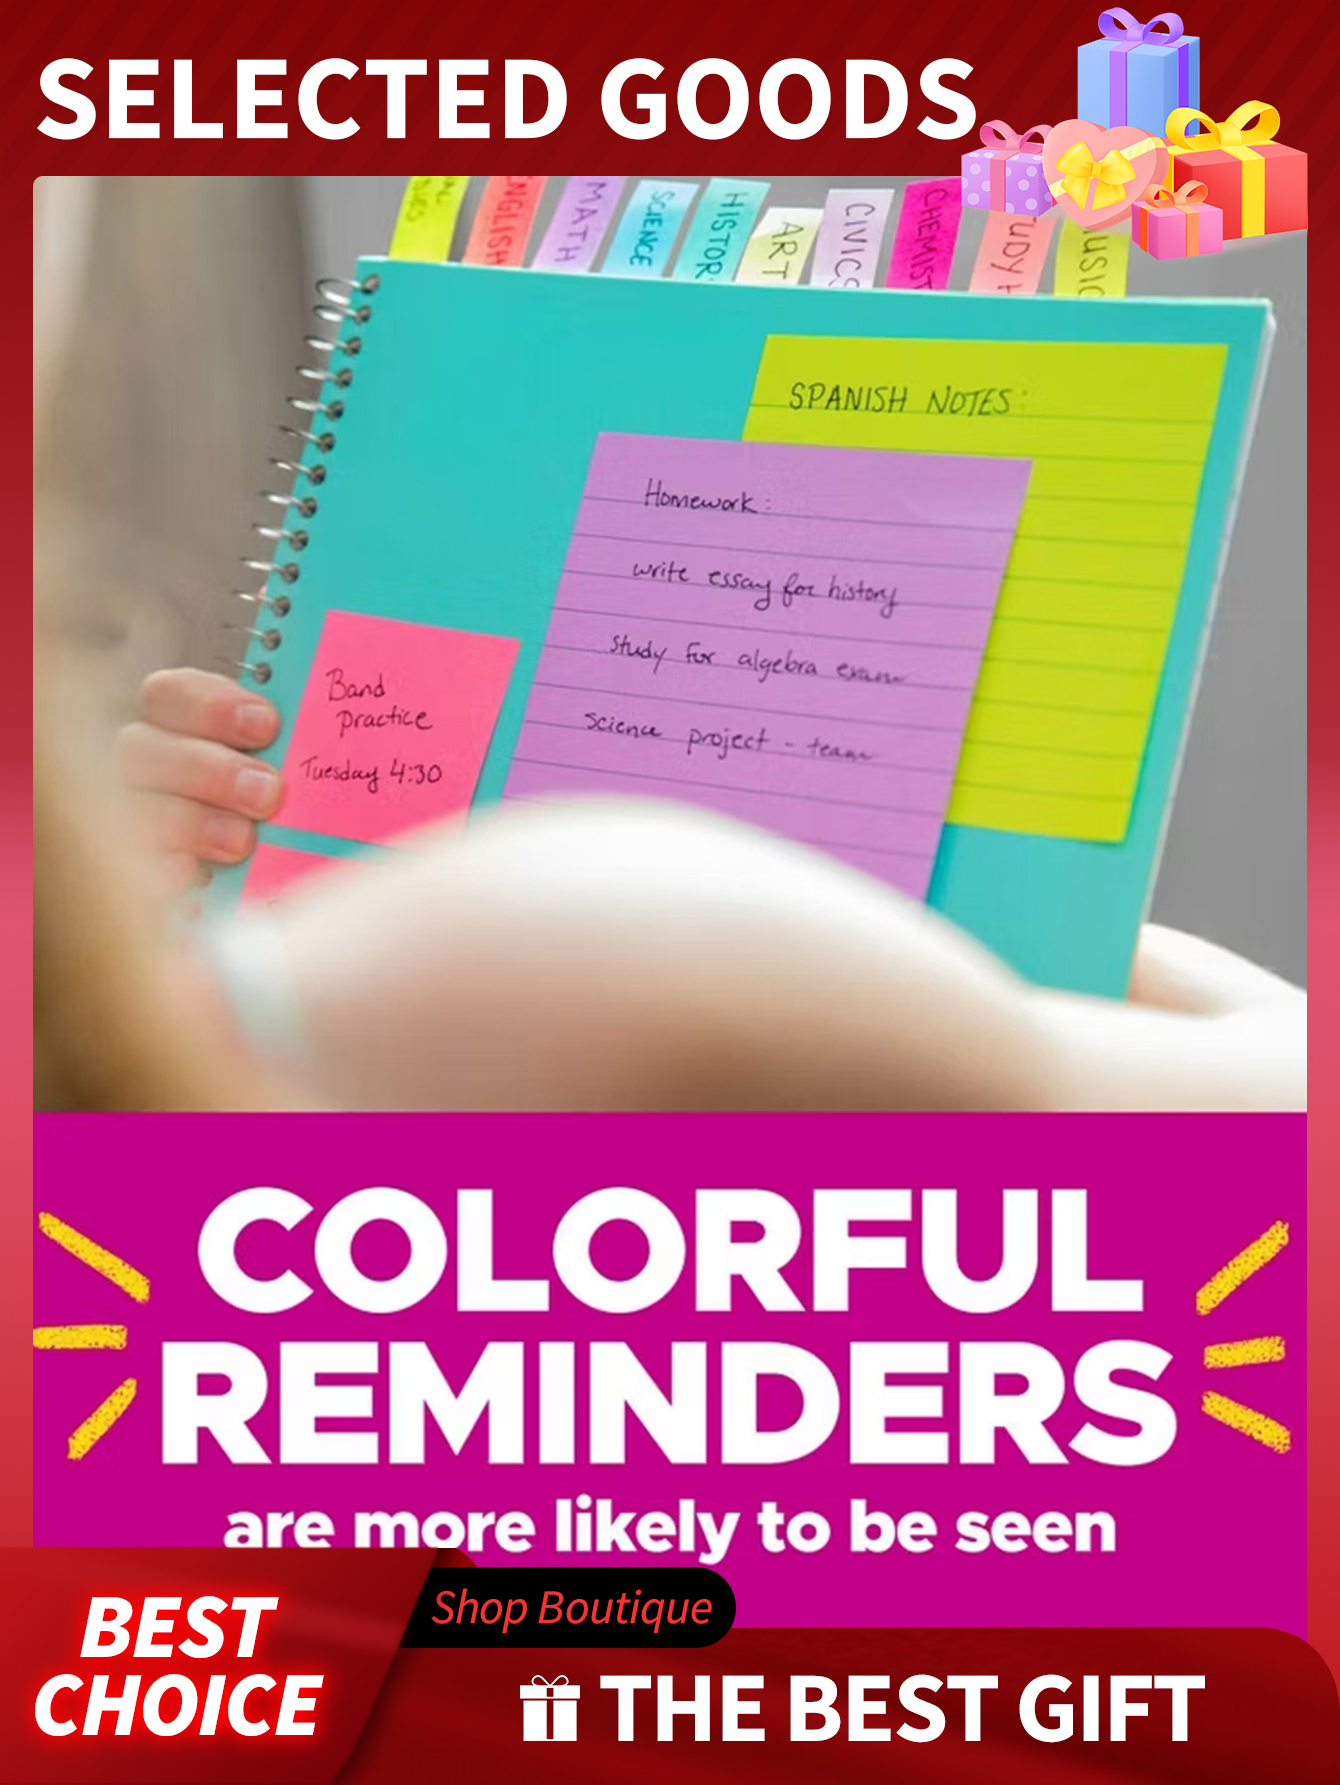 SELECTED GOODS
ENGLISH
MATH
SCIENCE
HISTOR
ART
CIVICS
CHEMIST
UDY
USIC
SPANISH NOTES:
Homework:
write essay for history
study for algebra exam
science project - team
Band
practice
Tuesday 4:30
COLORFUL
REMINDERS
are more likely to be seen
BEST
CHOICE
Shop Boutique
THE BEST GIFT